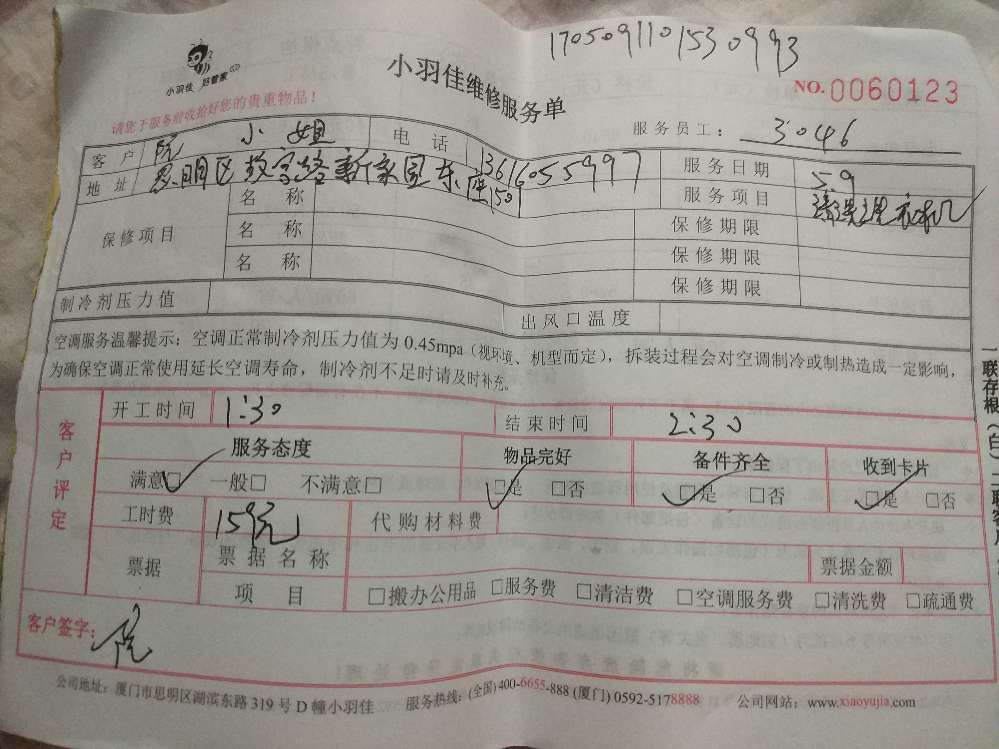 170509110153099 3
小羽佳 好管家
小羽佳维修服务单
NO. 0060123
请您于服务前收拾好您的贵重物品！
服务员工： 3046
客户 阮小姐 电话 13616055997 服务日期 5.9
地址 思明区 新家园东座1501 服务项目 清洗 衣机
保修项目 名称 保修期限
名称 保修期限
名称 保修期限
制冷剂压力值 出风口温度
空调服务温馨提示：空调正常制冷剂压力值为 0.45mpa（视环境、机型而定），拆装过程会对空调制冷或制热造成一定影响，
为确保空调正常使用延长空调寿命，制冷剂不足时请及时补充。
客户评定
开工时间 1:30 结束时间 2:30
服务态度 物品完好 备件齐全 收到卡片
满意□ 一般□ 不满意□ □是 □否 □是 □否 □是 □否
工时费 159元 代购材料费
票据 票据名称 票据金额
项目 □搬办公用品 □服务费 □清洁费 □空调服务费 □清洗费 □疏通费
客户签字： 阮
公司地址：厦门市思明区湖滨东路 319 号 D 幢小羽佳 服务热线：(全国) 400-6655-888 (厦门) 0592-5178888 公司网站：www.xiaoyujia.com
一联存根（白）二联客户